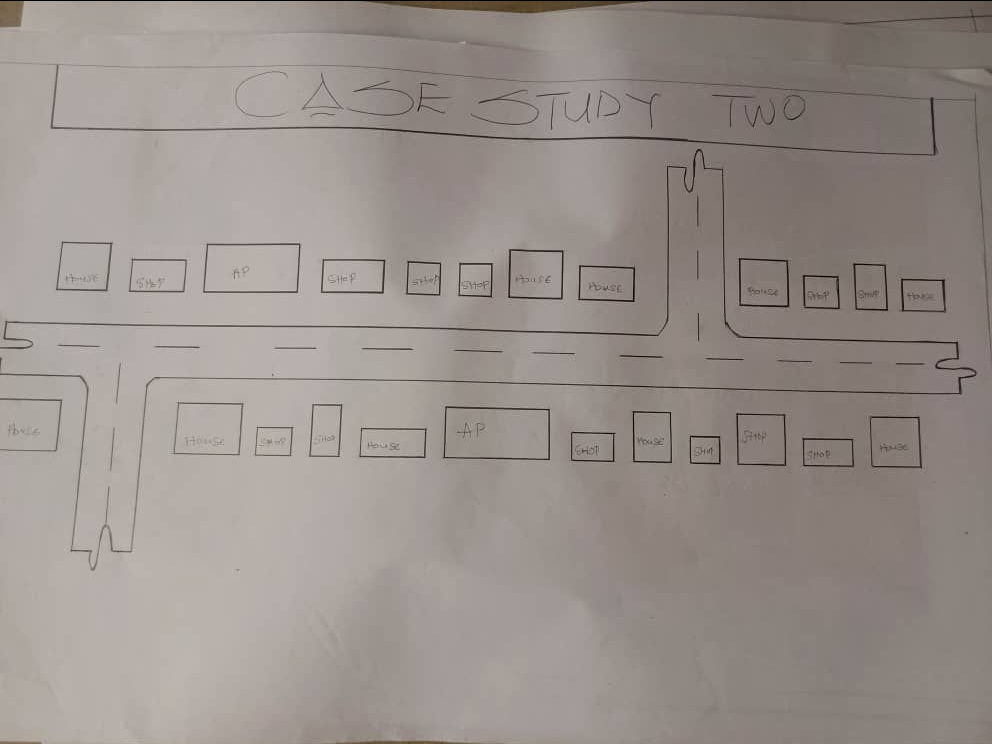 CASE STUDY TWO
HOUSE SHOP AP SHOP SHOP SHOP HOUSE HOUSE HOUSE SHOP SHOP HOUSE
HOUSE HOUSE SHOP SHOP HOUSE AP SHOP HOUSE SHOP SHOP SHOP HOUSE